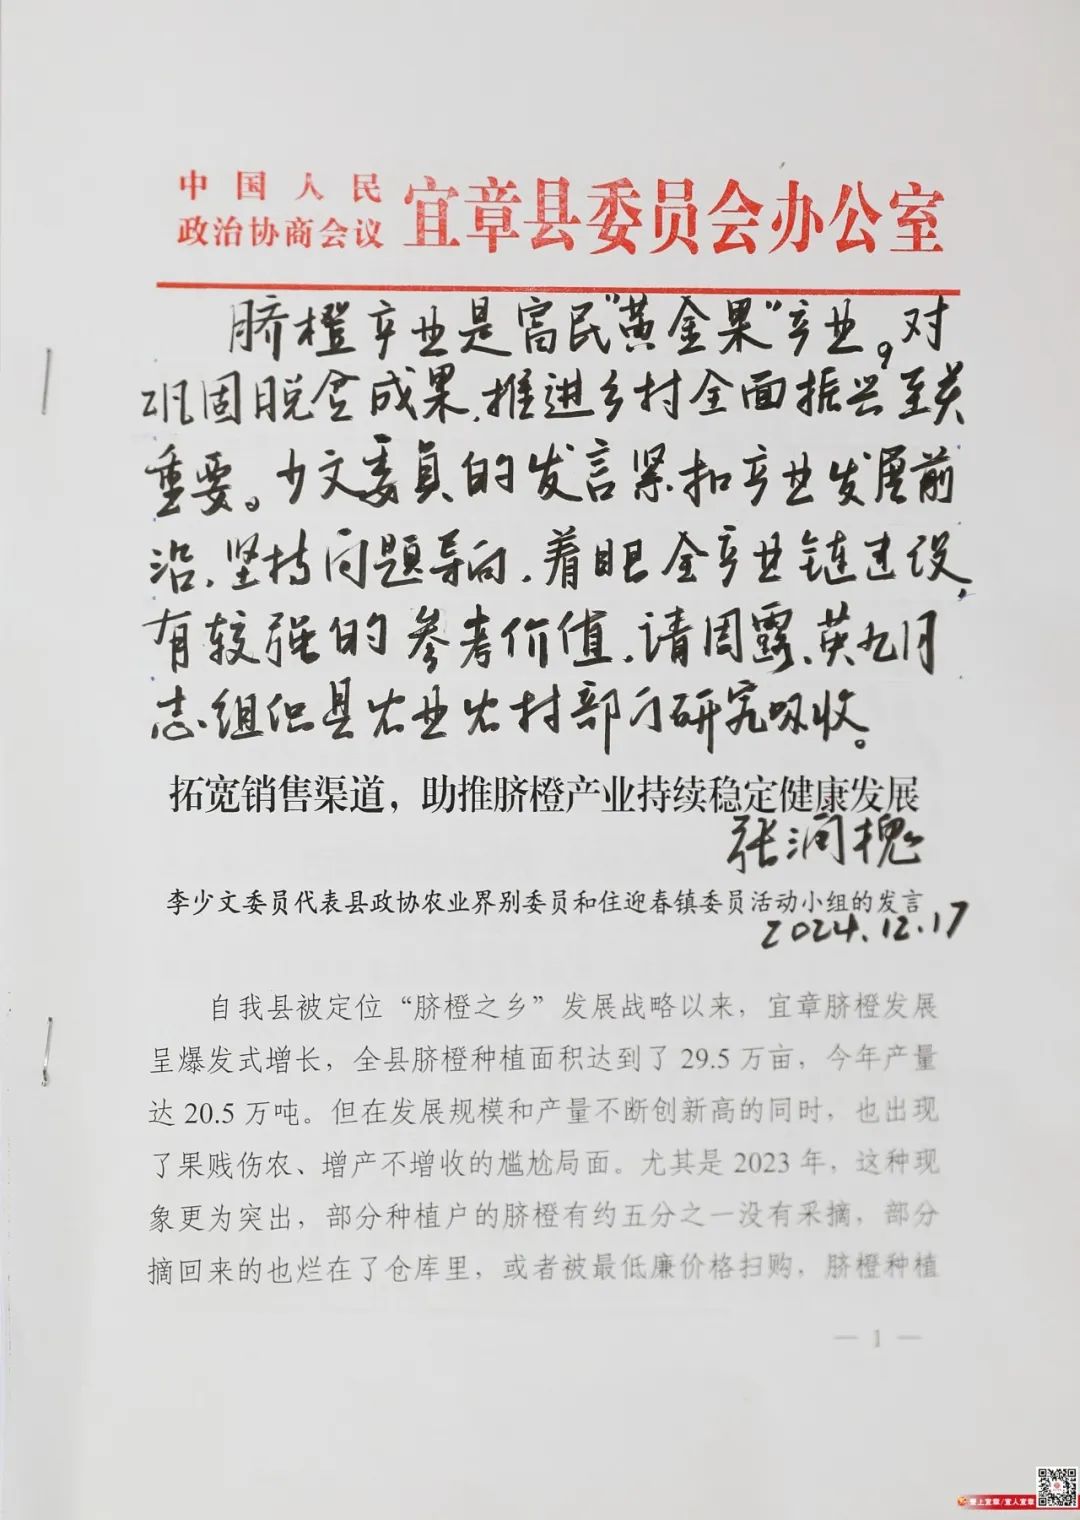 中国人民
政治协商会议
宜章县委员会办公室
脐橙产业是富民"黄金果"产业。对
巩固脱贫成果、推进乡村全面振兴至关
重要。少文委员的发言紧扣产业发展前
沿、坚持问题导向、着眼全产业链建设,
有较强的参考价值,请周露、英九同
志组织县农业农村部门研究吸收。
拓宽销售渠道，助推脐橙产业持续稳定健康发展
张润槐
李少文委员代表县政协农业界别委员和住迎春镇委员活动小组的发言
2024.12.17
自我县被定位“脐橙之乡”发展战略以来，宜章脐橙发展
呈爆发式增长，全县脐橙种植面积达到了 29.5 万亩，今年产量
达 20.5 万吨。但在发展规模和产量不断创新高的同时，也出现
了果贱伤农、增产不增收的尴尬局面。尤其是 2023 年，这种现
象更为突出，部分种植户的脐橙有约五分之一没有采摘，部分
摘回来的也烂在了仓库里，或者被最低廉价格扫购，脐橙种植
— 1 —
爱上宜章/宜人宜章